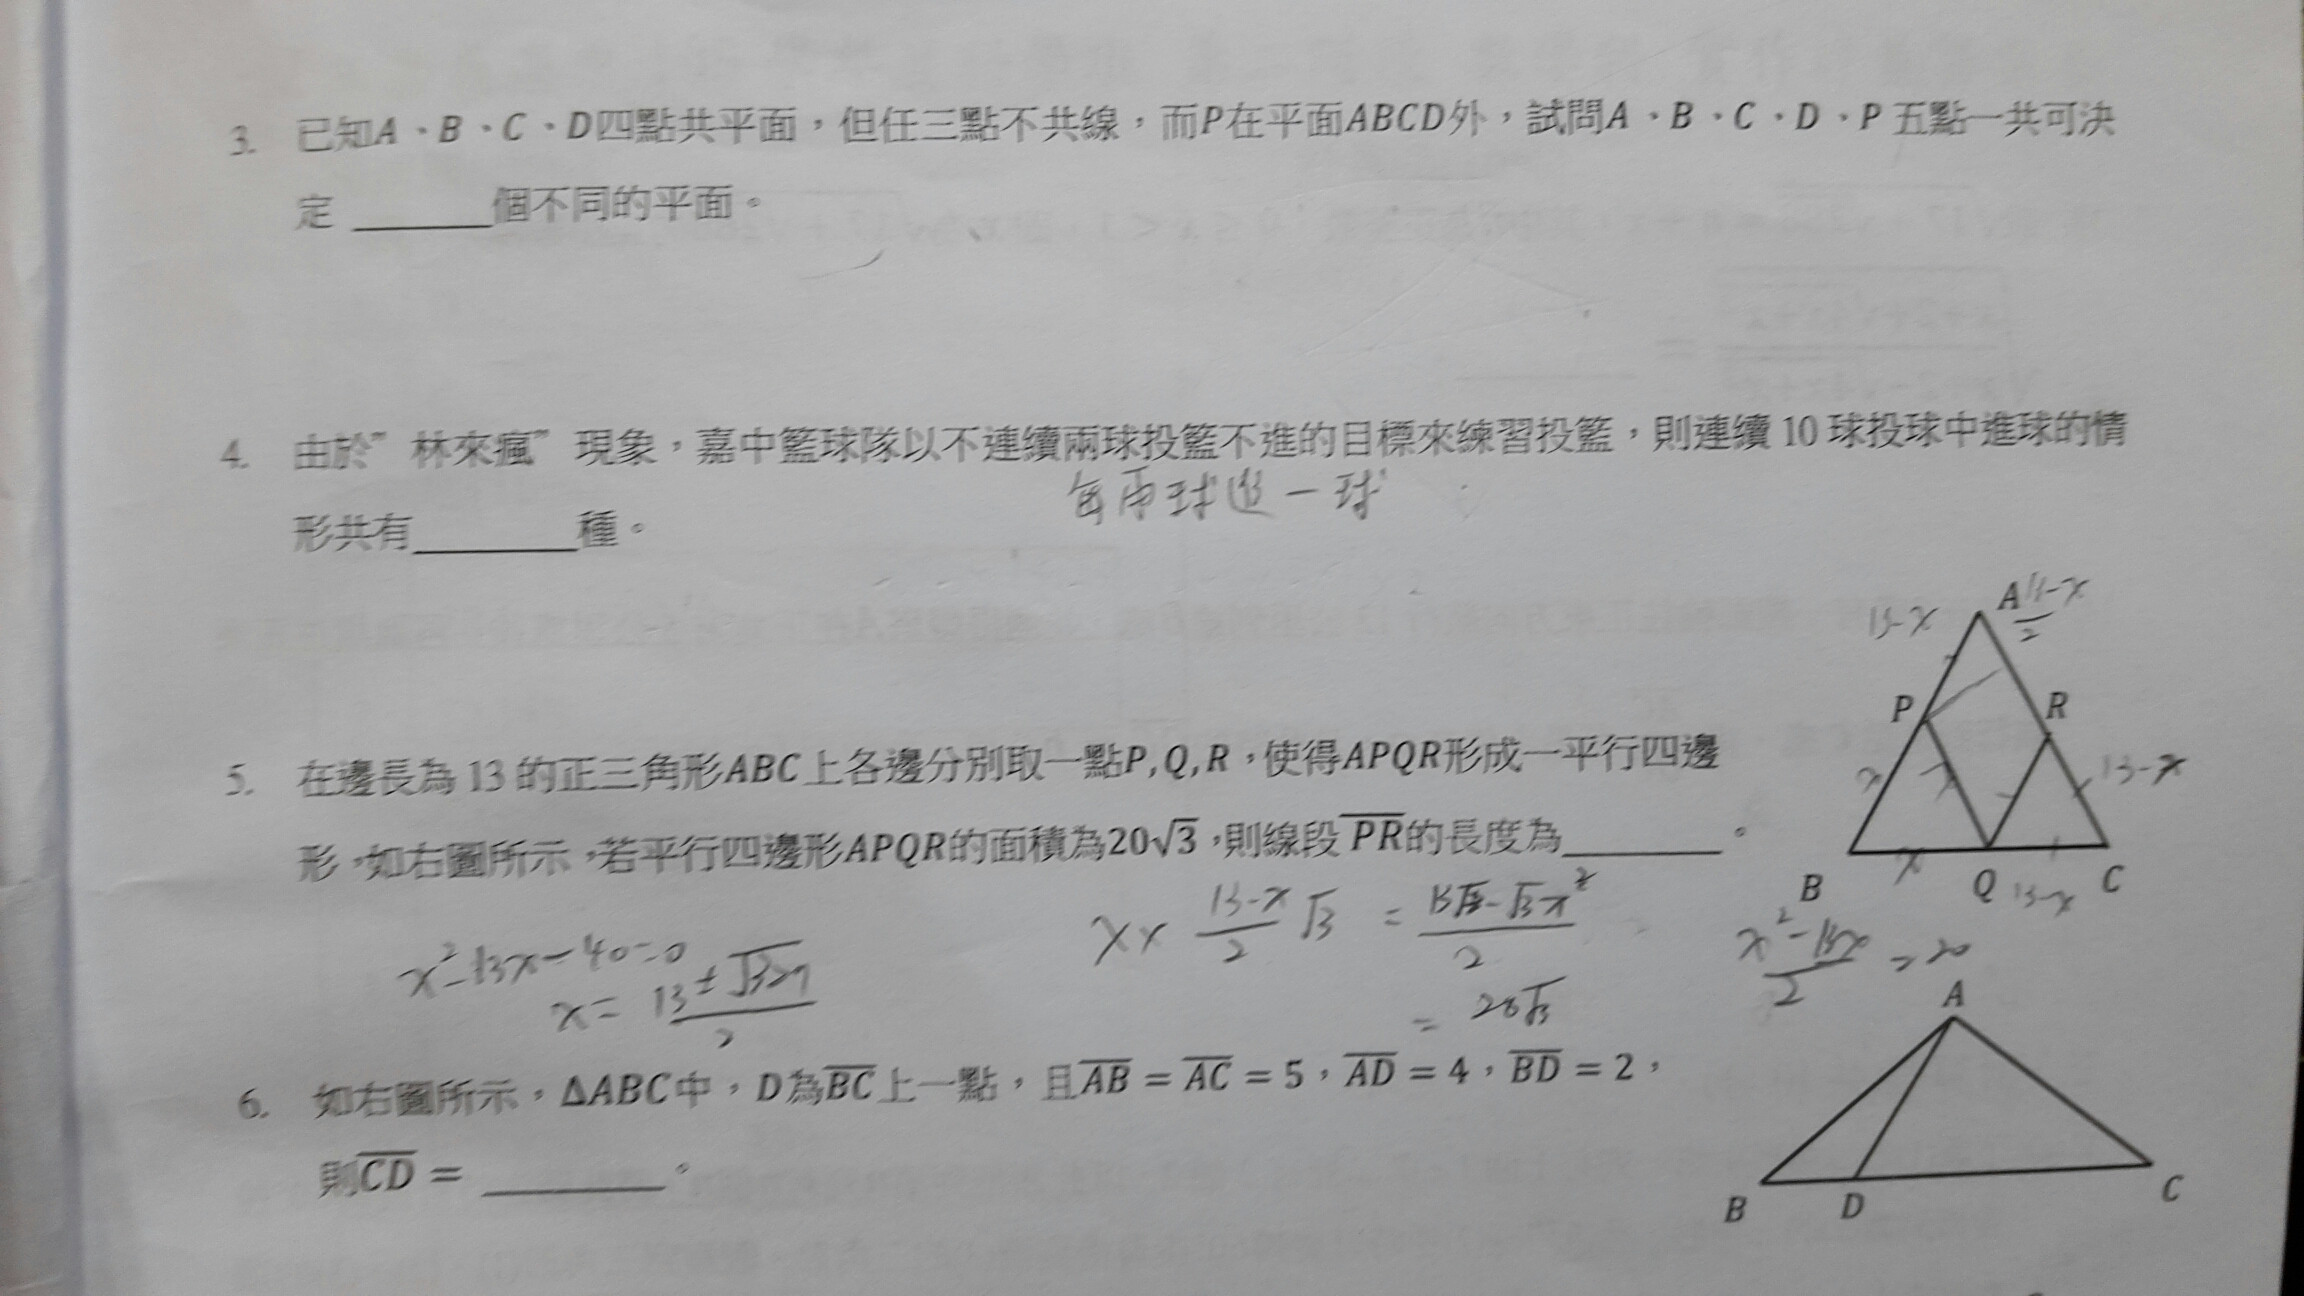 3. 已知A、B、C、D四點共平面，但任三點不共線，而P在平面ABCD外，試問A、B、C、D、P五點一共可決
定 ______個不同的平面。
4. 由於”林來瘋”現象，嘉中籃球隊以不連續兩球投籃不進的目標來練習投籃，則連續 10 球投球中進球的情
每兩球進一球
形共有_______種。
A
13-x
P
R
13-x
x
B
x
Q
13-x
C
5. 在邊長為 13 的正三角形ABC上各邊分別取一點P,Q,R，使得APQR形成一平行四邊
形，如右圖所示，若平行四邊形APQR的面積為20√3，則線段PR的長度為_______。
x × (13-x)/2 √3 = (13√3-√3x²)/2
= 20√3
x²-13x-40=0
x = (13±√329)/2
(x²-13x)/2 = 20
6. 如右圖所示，ΔABC中，D為BC上一點，且AB = AC = 5，AD = 4，BD = 2，
則CD = ________。
A
B
D
C